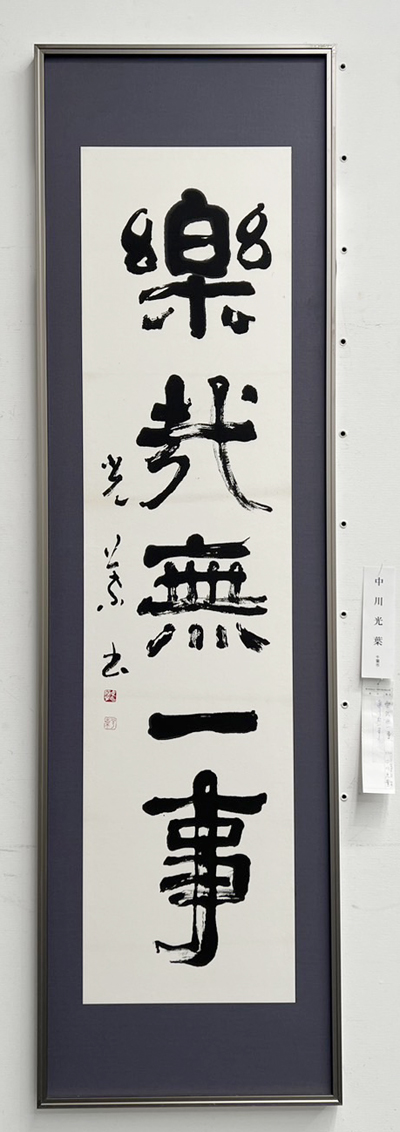 樂哉無一事
光葉書
中川光葉